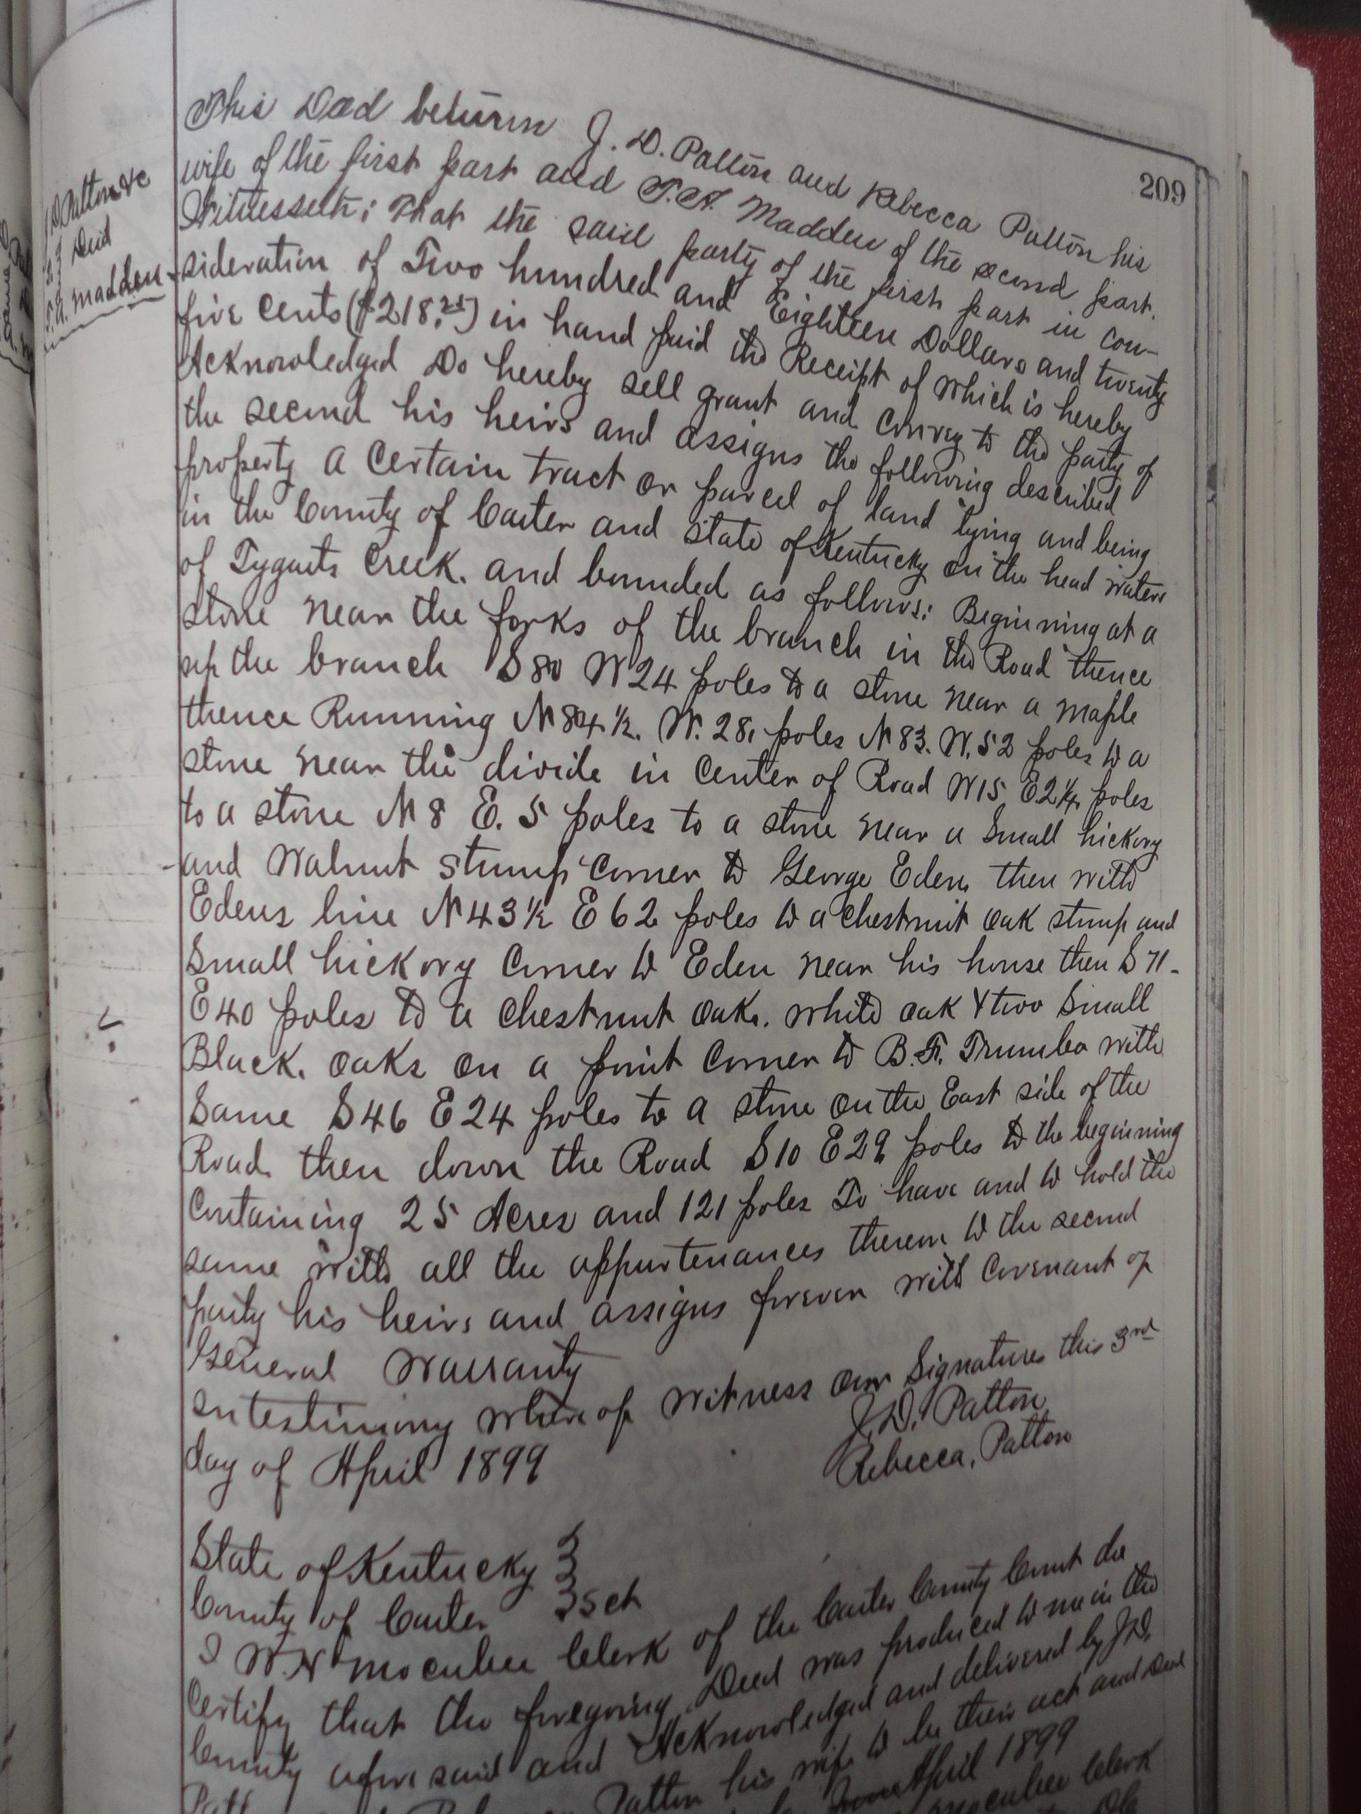 209
J.D. Patton &c
Deed
T.A. Madden
This Deed between J. D. Patton and Rebecca Patton his
wife of the first part and T.A. Madden of the second part.
Witnesseth; That the said party of the first part in con-
sideration of Two hundred and Eighteen Dollars and twenty
five cents ($218.25) in hand paid the Receipt of which is hereby
Acknowledged Do hereby sell grant and convey to the party of
the second his heirs and assigns the following described
property a certain tract or parcel of land lying and being
in the County of Carter and state of Kentucky on the head waters
of Tygarts Creek. and bounded as follows: Beginning at a
stone near the forks of the branch in the Road thence
up the branch S 80 W 24 poles to a stone near a maple
thence Running N 84 1/2. W. 28, poles N 83. W. 52 poles to a
stone near the divide in Center of Road N 15 E 2 1/4 poles
to a stone N 8 E. 5 poles to a stone near a Small hickory
and Walnut stump Corner to George Eden, then with
Edens line N 43 1/2 E 62 poles to a chestnut oak stump and
Small hickory Corner to Eden near his house then S 71-
E 40 poles to a chestnut oak. white oak & two Small
Black. oaks on a point Corner to B.F. Trumbo with
Same S 46 E 24 poles to a stone on the East side of the
Road. then down the Road S 10 E 29 poles to the beginning
Containing 25 Acres and 121 poles To have and to hold the
same with all the appurtenances thereon to the second
party his heirs and assigns forever with Covenant of
General Warranty
In testimony where of witness our Signatures this 3rd
day of April 1899
J.D. Patton
Rebecca, Patton
State of Kentucky }
County of Carter } Sct
I W.N. Clerk of the Carter County Court do
Certify that the foregoing Deed was produced to me in the
County afore said and Acknowledged and delivered by J.D.
Patton his wife to be their act and Deed
April 1899
Clerk